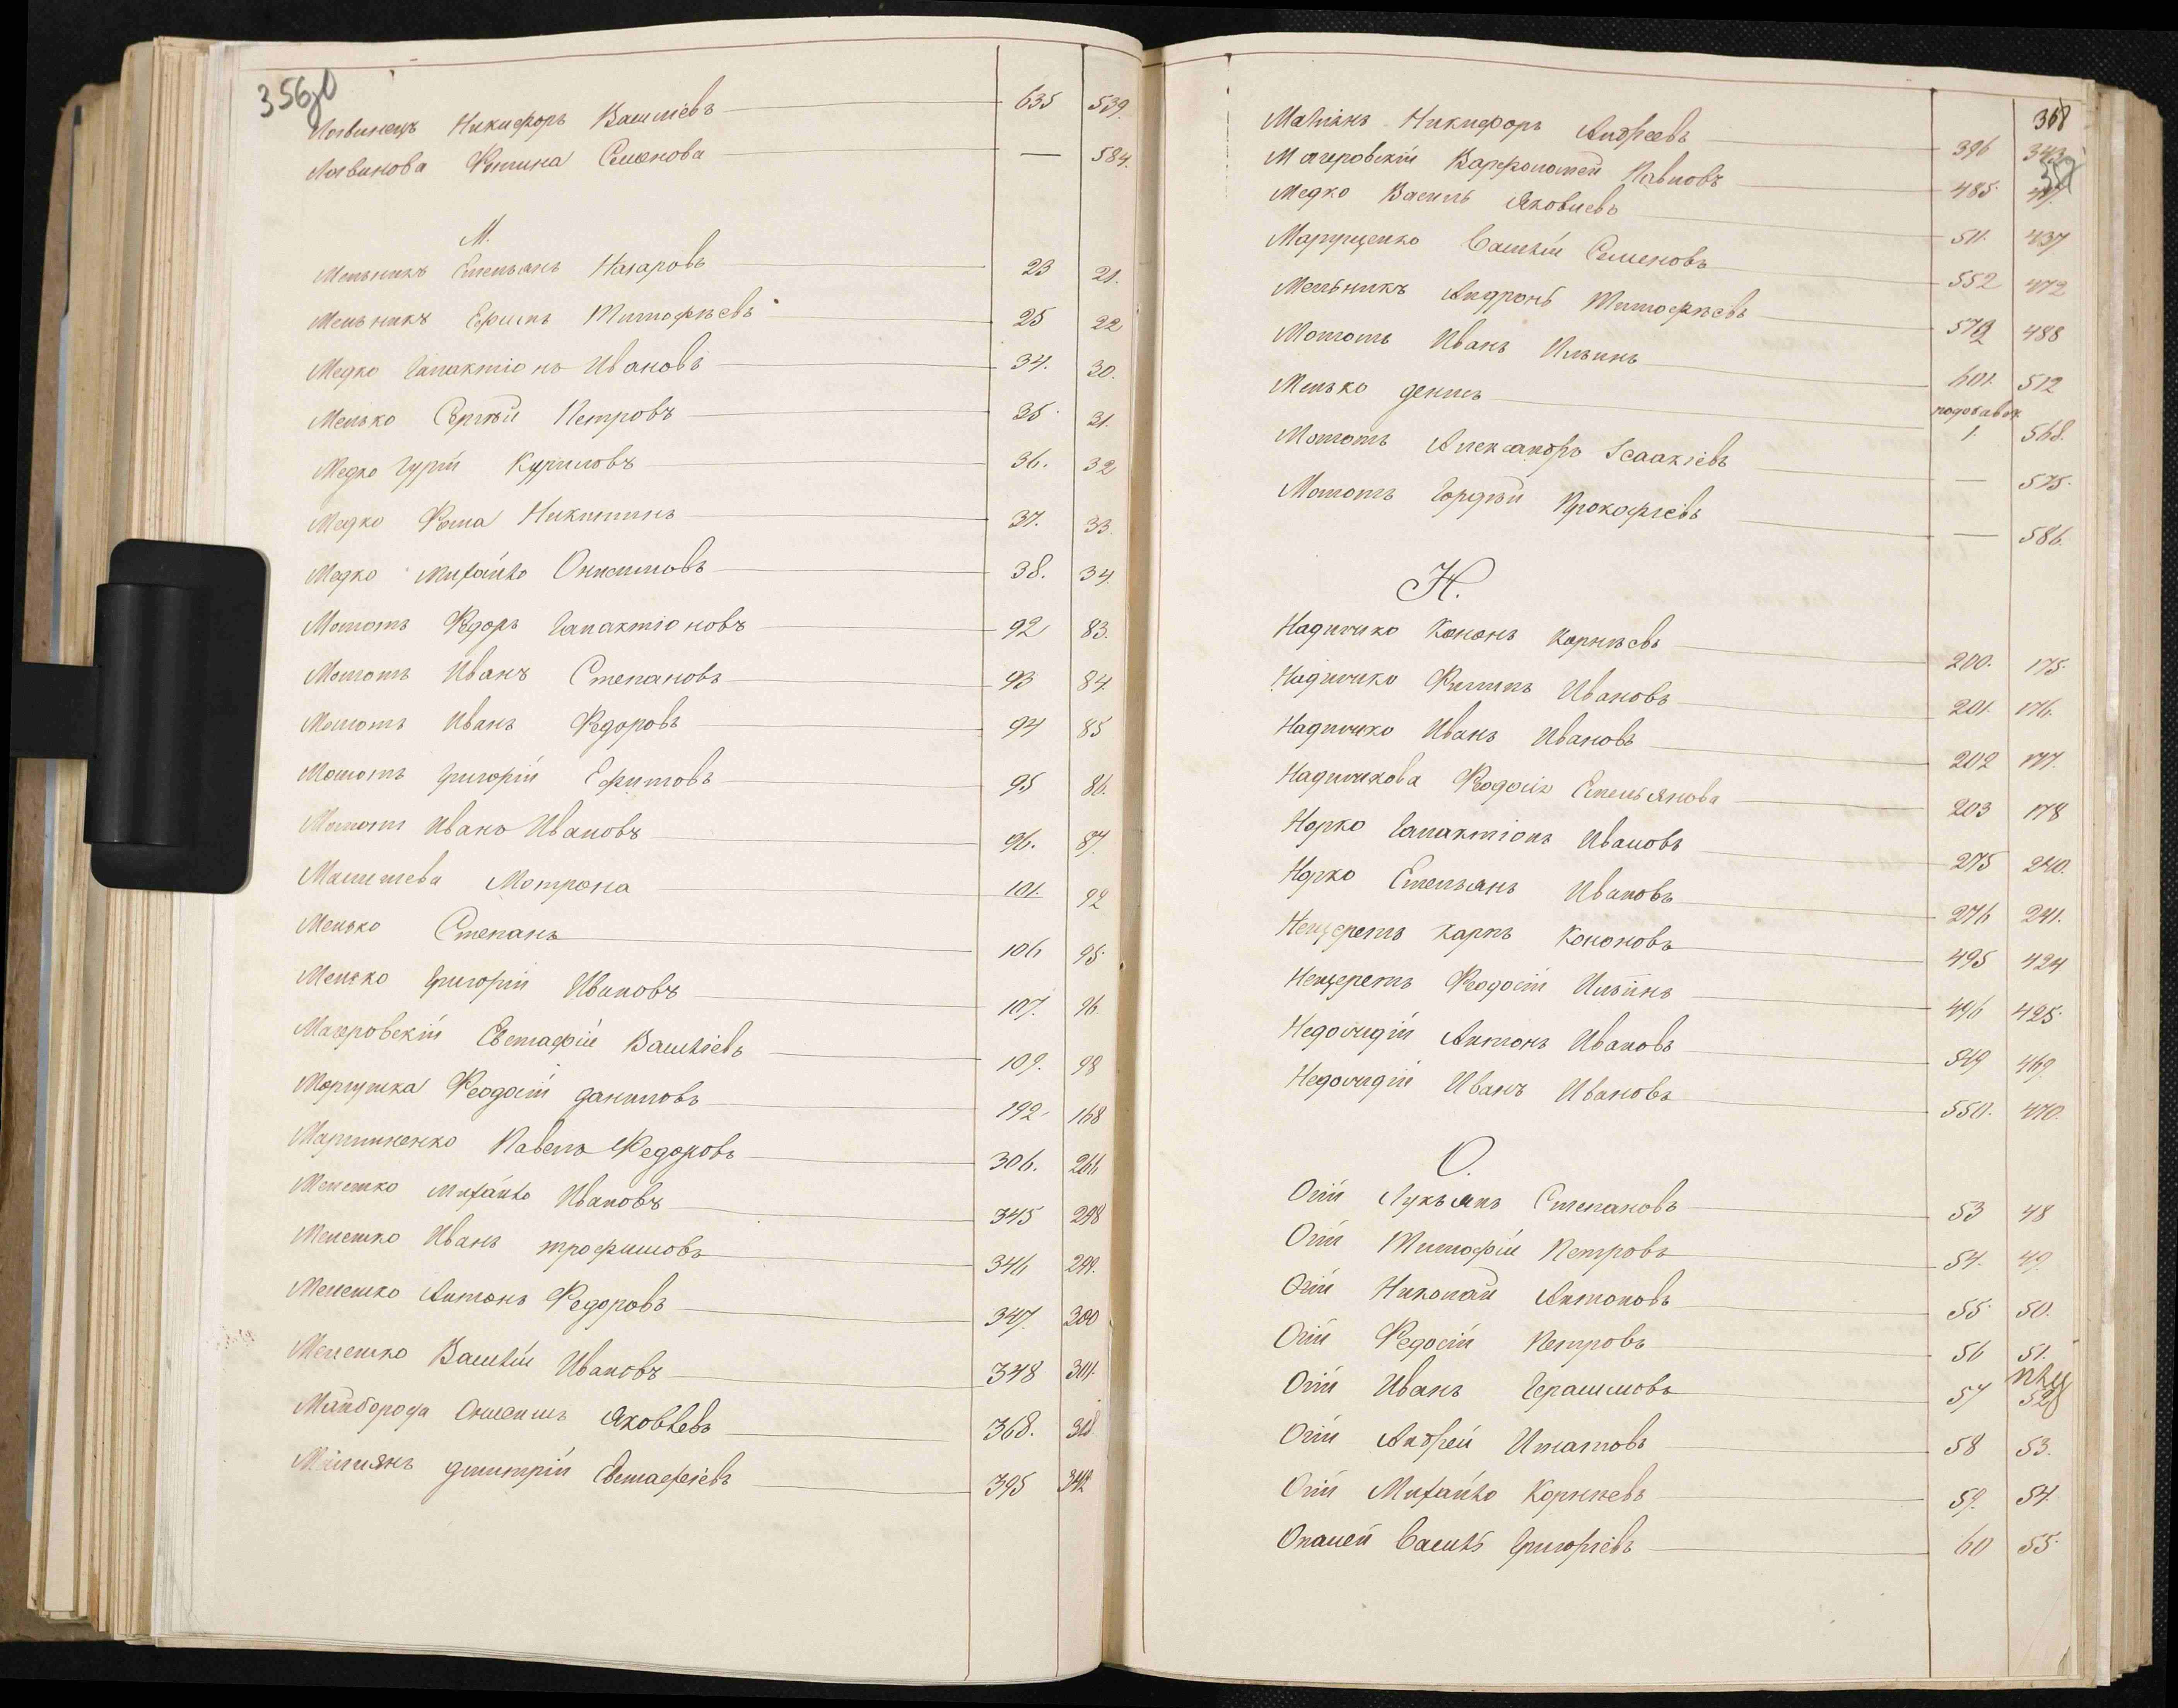 356
Логвинецъ Никифоръ Васильевъ 635 539.
Логвинова Фотина Семенова — 584.
М.
Мельникъ Емельянъ Назаровъ 23 21.
Мельникъ Ефимъ Тимофѣевъ 25 22
Медко Галактіонъ Ивановъ 34. 30.
Мелько Сергѣй Петровъ 35. 31.
Медко Гурій Куриловъ 36. 32
Медко Фома Никитинъ 37. 33.
Медко Михайло Онисимовъ 38. 34.
Мототъ Федоръ Галактіоновъ 92 83.
Мототъ Иванъ Степановъ 93 84.
Мототъ Иванъ Федоровъ 94 85
Мототъ Григорій Ефимовъ 95 86.
Мототъ Иванъ Ивановъ 96. 87.
Мотрона 101. 92
Мелько Степанъ 106 95.
Мелько Григорій Ивановъ 107. 96.
Магеровскій Евстафій Васильевъ 109. 98
Моргушка Феодосій Даниловъ 192. 168
Мартиненко Павелъ Федоровъ 306. 266
Мелешко Михайло Ивановъ 345 298
Мелешко Иванъ Трофимовъ 346 299.
Мелешко Антонъ Федоровъ 347. 300
Мелешко Василій Ивановъ 348 301.
Майборода Онисимъ Яковлевъ 368. 318
Маліянъ Дмитрій Евстафіевъ 395 342
368
Маліянъ Никифоръ Андреевъ 396 343
Магеровскій Варфоломей Павловъ 485. 417.
Медко Василь Яковлевъ 511. 437
Марущенко Савелій Семеновъ 552 472
Мельникъ Андронъ Тимофѣевъ 572 488
Мототъ Иванъ Ильинъ 601. 512
Мелько Денисъ 1. 568.
Мототъ Александръ Ісаакіевъ — 575.
Мототъ Гордѣй Прокофіевъ — 586.
Н.
Надточко Кононъ Корнѣевъ 200. 175.
Надточко Филипъ Ивановъ 201. 176.
Надточко Иванъ Ивановъ 202 177.
Надточкова Феодосія Емельянова 203 178
Норко Галактіонъ Ивановъ 275 240.
Норко Емельянъ Ивановъ 276 241.
Нещеретъ Карпъ Кононовъ 495 424
Нещеретъ Феодосій Ильинъ 496 425.
Недоилидій Антонъ Ивановъ 549 469.
Недоилидій Иванъ Ивановъ 550. 470.
О.
Огій Лукьянъ Степановъ 53 48
Огій Тимофій Петровъ 54. 49.
Огій Николай Антоновъ 55. 50.
Огій Федосій Петровъ 56 51.
Огій Иванъ Герасимовъ 57 52
Огій Андрей Игнатовъ 58 53.
Огій Михайло Корнѣевъ 59. 54.
Опалей Савелій Григорьевъ 60 55.